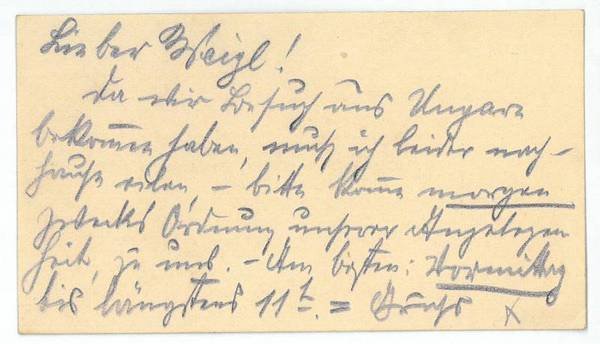 Lieber Weigl!
Da wir Besuch aus Ungarn
bekommen haben, muß ich leider nach-
hause eilen, – bitte komme morgen
zwecks Ordnung unserer Angelegen
heit, zu uns. – Am besten: Vormittag
bis längstens 11 h. =